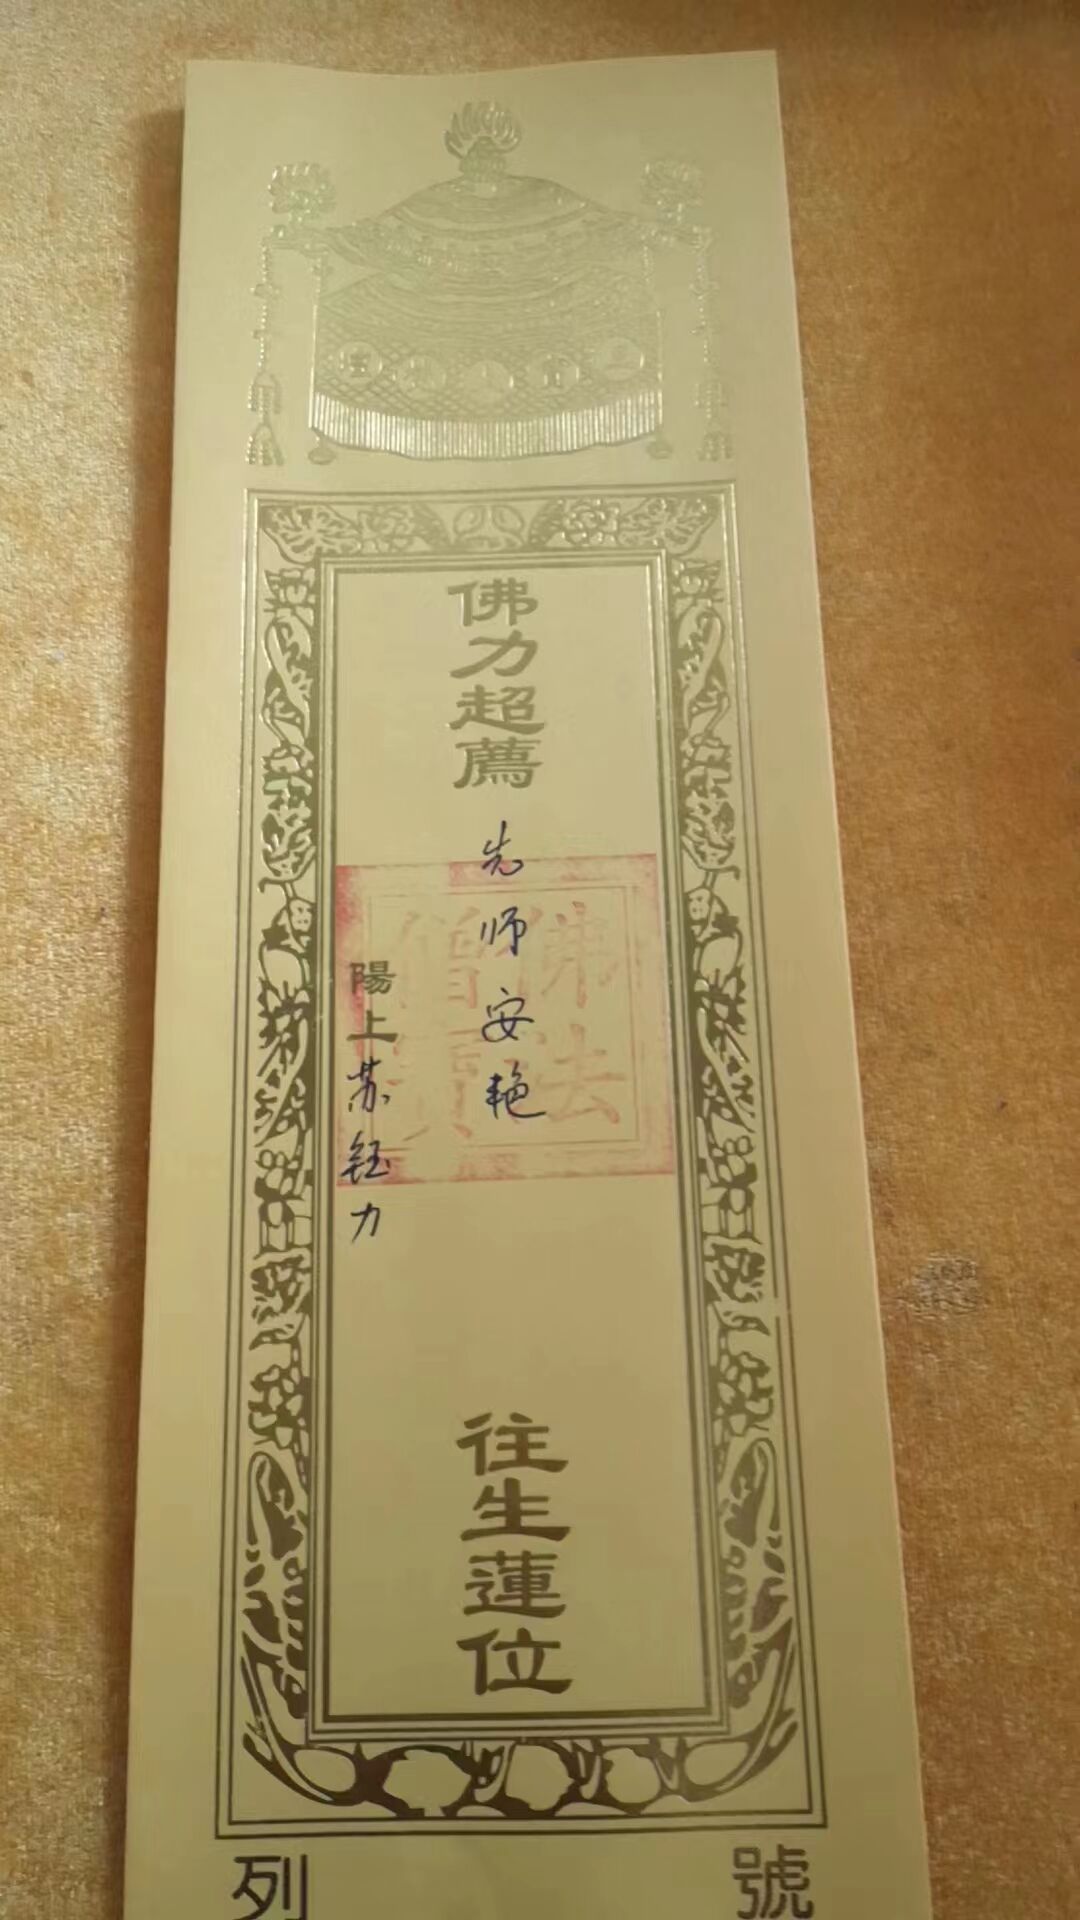 佛力超薦
先师安艳
往生蓮位
陽上苏钰力
佛法
僧寳
列
號